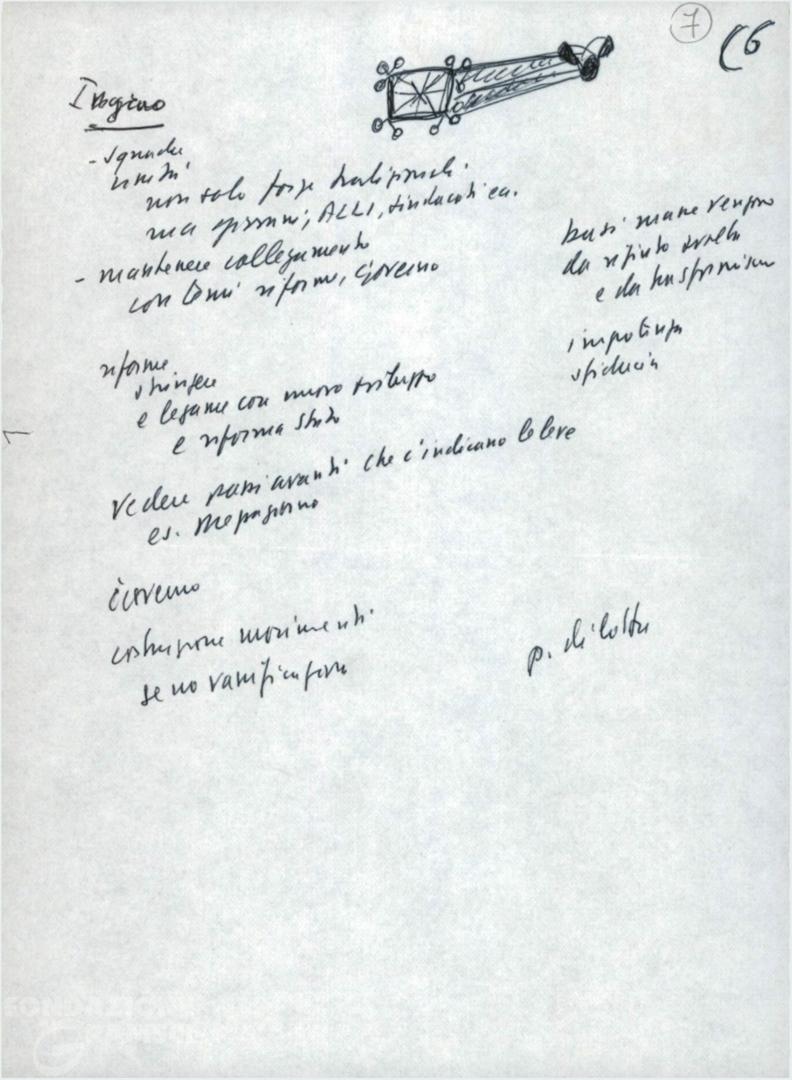 7
(6
Ingrao
- squadre
unità
non solo forze tradizionali
ma giovani, ACLI, sindacati ecc.
- mantenere collegamento
con temi riforme, Governo
basi mane vengono
da rifiuto svolta
e da trasformismo
impotenza
sfiducia
riforme
stringere
e legame con nuovo sviluppo
e riforma Stato
Vedere passi avanti che c'indicano le leve
es. Mezzogiorno
Governo
costruzione movimenti
se no vanificazione
p. di lotta
FONDAZIONE GRAMSCI